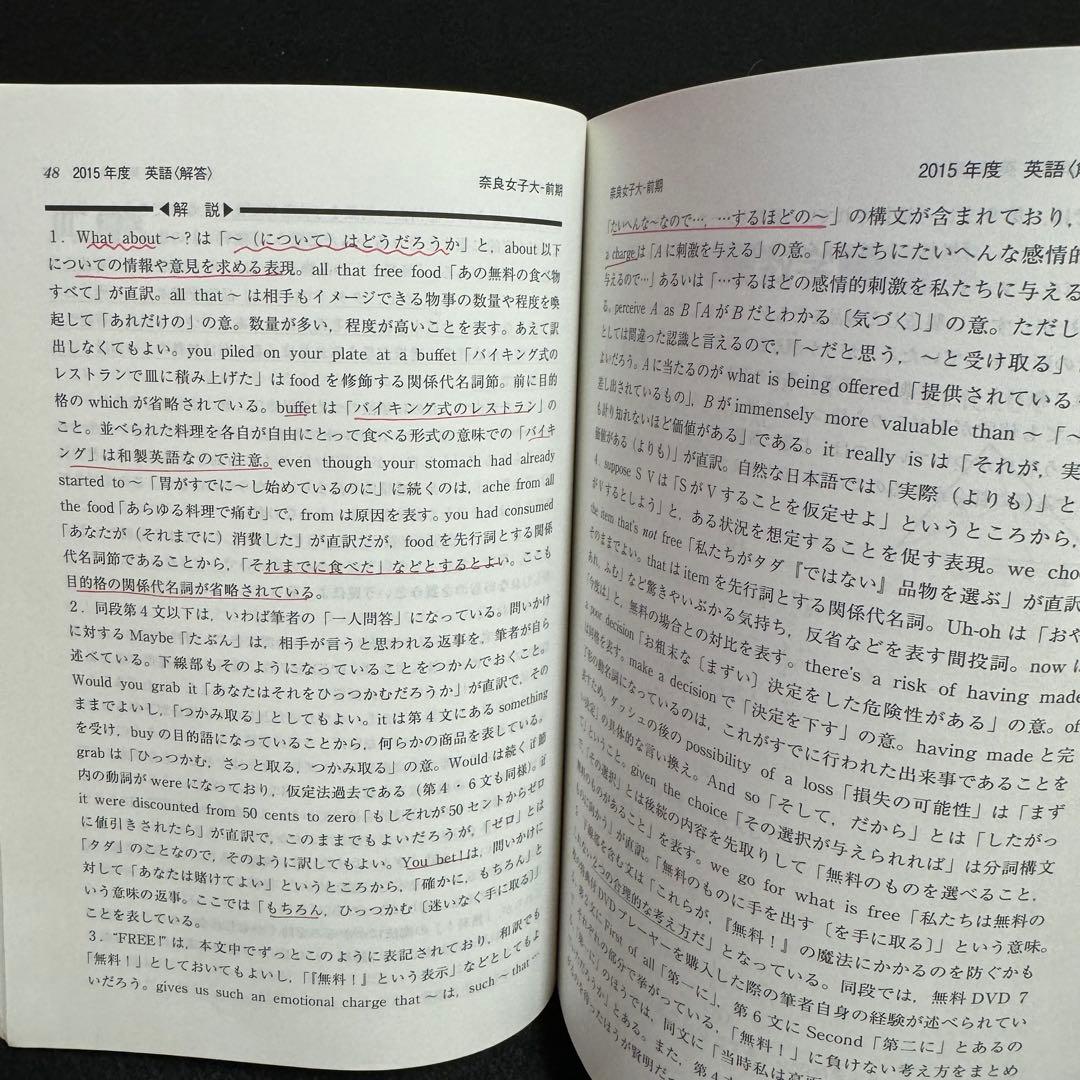 48 2015年度 英語〈解答〉
奈良女子大-前期
◀解 説▶
1．What about ～? は「～（について）はどうだろうか」と，about 以下
についての情報や意見を求める表現。all that free food「あの無料の食べ物
すべて」が直訳。all that ～ は相手もイメージできる物事の数量や程度を喚
起して「あれだけの」の意。数量が多い，程度が高いことを表す。あえて訳
出しなくてもよい。you piled on your plate at a buffet「バイキング式の
レストランで皿に積み上げた」は food を修飾する関係代名詞節。前に目的
格の which が省略されている。buffet は「バイキング式のレストラン」の
こと。並べられた料理を各自が自由にとって食べる形式の意味での「バイキ
ング」は和製英語なので注意。even though your stomach had already
started to ～「胃がすでに～し始めているのに」に続くのは，ache from all
the food「あらゆる料理で痛む」で，from は原因を表す。you had consumed
「あなたが（それまでに）消費した」が直訳だが，food を先行詞とする関係
代名詞節であることから，「それまでに食べた」などとするとよい。ここも
目的格の関係代名詞が省略されている。
2．同段第4文以下は，いわば筆者の「一人問答」になっている。問いかけ
に対する Maybe「たぶん」は，相手が言うと思われる返事を，筆者が自ら
述べている。下線部もそのようになっていることをつかんでおくこと。
Would you grab it「あなたはそれをひっつかむだろうか」が直訳で，その
ままでよいし，「つかみ取る」としてもよい。it は第4文にある something
を受け，buy の目的語になっていることから，何らかの商品を表している。
grab は「ひっつかむ，さっと取る，つかみ取る」の意。Would は続く if 節
内の動詞が were になっており，仮定法過去である（第4・6文も同様）。if
it were discounted from 50 cents to zero「もしそれが50セントからゼロ
に値引きされたら」が直訳で，このままでもよいだろうが，「ゼロ」とは
「タダ」のことなので，そのように訳してもよい。You bet! は，問いかけに
対して「あなたは賭けてよい」というところから，「確かに，もちろん」と
いう意味の返事。ここでは「もちろん，ひっつかむ〔迷いなく手に取る〕」
ことを表している。
3．“FREE!”は，本文中でずっとこのように表記されており，和訳でも
「無料！」としておいてもよいし，「『無料！』という表示」などとしてもよ
いだろう。gives us such an emotional charge that ～ は，such ～ that …
奈良女子大-前期
2015年度 英語〈
「たいへんな～なので…，…するほどの～」の構文が含まれており，
a charge は「Aに刺激を与える」の意。「私たちにたいへんな感情的
与えるので…」あるいは「…するほどの感情的刺激を私たちに与える
る。perceive A as B「AがBだとわかる〔気づく〕」の意。ただし
としては間違った認識と言えるので，「～だと思う，～と受け取る」
よいだろう。Aに当たるのが what is being offered「提供されている
差し出されているもの」，Bが immensely more valuable than ～「～
も計り知れないほど価値がある」である。it really is は「それが，実
価値がある（よりも）」が直訳。自然な日本語では「実際（よりも）」と
4．suppose S V は「SがVすることを仮定せよ」というところから，
がVするとしよう」と，ある状況を想定することを促す表現。we choo
the item that's not free「私たちがタダ『ではない』品物を選ぶ」が直訳
そのままでよい。that は item を先行詞とする関係代名詞。Uh-oh は「おや
あれ，ふむ」など驚きやいぶかる気持ち，反省などを表す間投詞。now は
「今度は」と，無料の場合との対比を表す。there's a risk of having made
a poor decision「お粗末な〔まずい〕決定をした危険性がある」の意。of
は同格を表す。make a decision で「決定を下す」の意。having made と完
了形の動名詞になっているのは，これがすでに行われた出来事であることを
表すため。ダッシュの後の possibility of a loss「損失の可能性」は「まず
い決定」の具体的な言い換え。And so「そして，だから」とは「したがっ
て」ということ。given the choice「その選択が与えられれば」は分詞構文
で，「その選択」とは後続の内容を先取りして「無料のものを選べること，
無料のものがあること」を表す。we go for what is free「私たちは無料の
ものに向かう」が直訳。「無料のものに手を出す〔を手に取る〕」という意味。
『無料！』の魔法にかかるのを防ぐかも
しれない2つの合理的な考え方だ」となっている。同段では，無料 DVD 7
DVD プレーヤーを購入した際の筆者自身の経験が述べられてい
First of all「第一に」，第6文に Second「第二に」とあるの
それぞれの部分で挙がっている，「無料！」に負けない考え方をまとめ